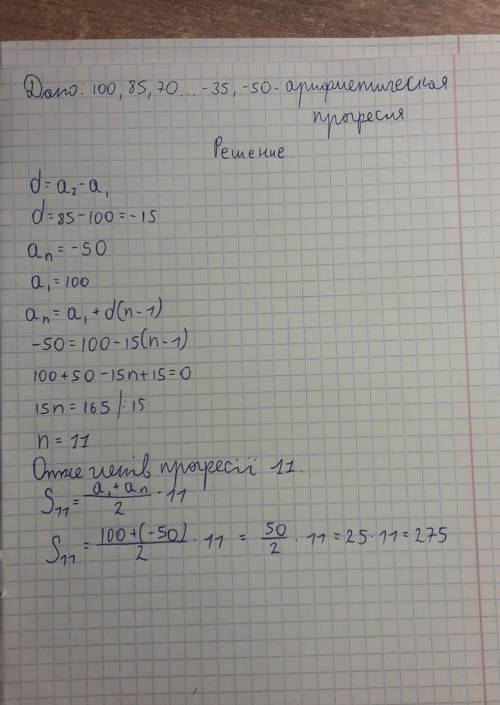 Дано: 100, 85, 70... -35, -50 - арифметическая
прогресия
Решение
d = a₂ - a₁
d = 85 - 100 = -15
aₙ = -50
a₁ = 100
aₙ = a₁ + d(n - 1)
-50 = 100 - 15(n - 1)
100 + 50 - 15n + 15 = 0
15n = 165 /: 15
n = 11
Отже членів прогресії 11.
S₁₁ = (a₁ + aₙ)/2 · 11
S₁₁ = (100 + (-50))/2 · 11 = 50/2 · 11 = 25 · 11 = 275